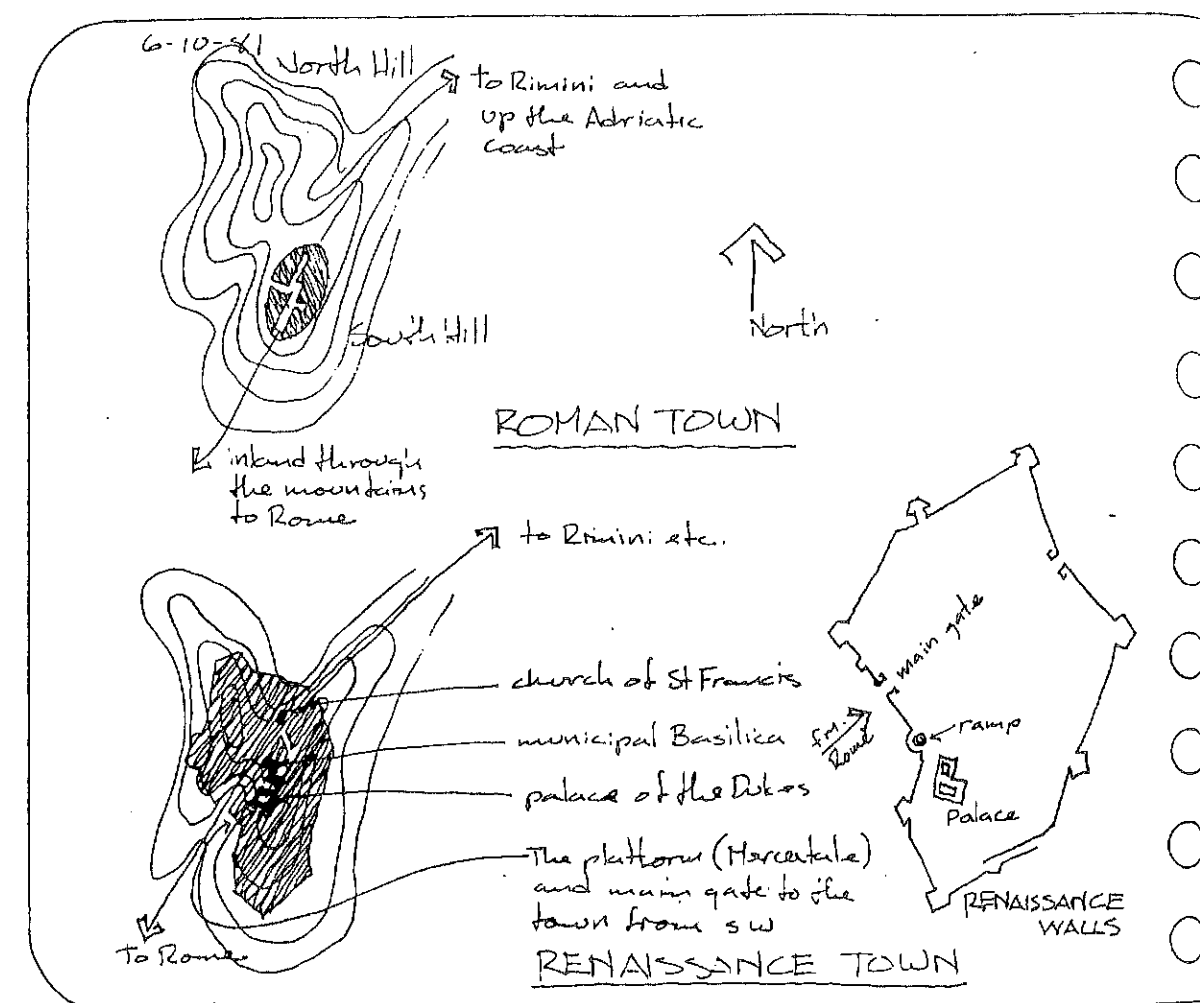 6-10-81
North Hill
to Rimini and
up the Adriatic
Coast
South Hill
North
ROMAN TOWN
inland through
the mountains
to Rome
to Rimini etc.
church of St Francis
municipal Basilica
palace of the Dukes
The platform (Mercatale)
and main gate to the
town from SW
to Rome
RENAISSANCE TOWN
main gate
fm.
Rome
ramp
Palace
RENAISSANCE
WALLS